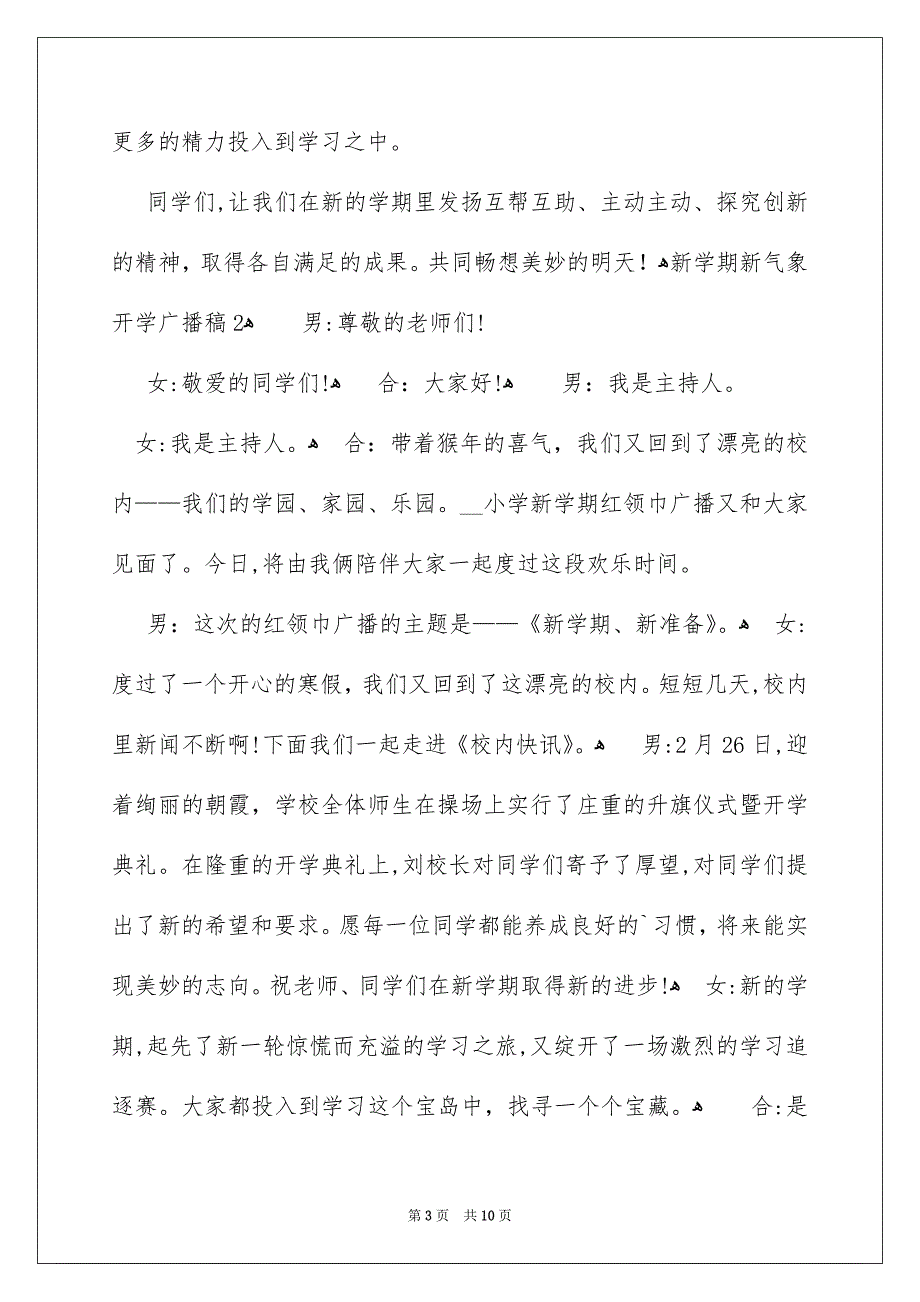 更多的精力投入到学习之中。
同学们,让我们在新的学期里发扬互帮互助、主动主动、探究创新
的精神，取得各自满足的成果。共同畅想美妙的明天！ﻫ新学期新气象
开学广播稿2ﻫ 男:尊敬的老师们!
女:敬爱的同学们!ﻫ 合：大家好!ﻫ 男：我是主持人。
女:我是主持人。ﻫ 合：带着猴年的喜气，我们又回到了漂亮的校
内——我们的学园、家园、乐园。__小学新学期红领巾广播又和大家
见面了。今日,将由我俩陪伴大家一起度过这段欢乐时间。
男：这次的红领巾广播的主题是——《新学期、新准备》。ﻫ 女:
度过了一个开心的寒假，我们又回到了这漂亮的校内。短短几天,校内
里新闻不断啊!下面我们一起走进《校内快讯》。ﻫ 男:2月26日,迎
着绚丽的朝霞，学校全体师生在操场上实行了庄重的升旗仪式暨开学
典礼。在隆重的开学典礼上,刘校长对同学们寄予了厚望,对同学们提
出了新的希望和要求。愿每一位同学都能养成良好的`习惯，将来能实
现美妙的志向。祝老师、同学们在新学期取得新的进步!ﻫ 女:新的学
期,起先了新一轮惊慌而充溢的学习之旅,又绽开了一场激烈的学习追
逐赛。大家都投入到学习这个宝岛中，找寻一个个宝藏。ﻫ 合:是
第 3 页 共 10 页